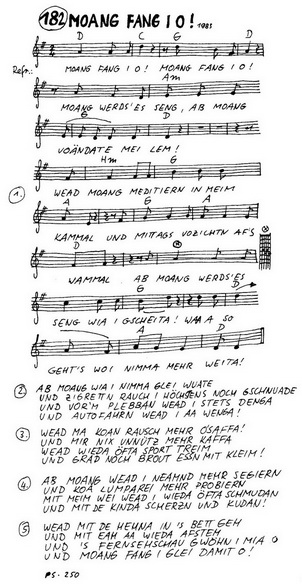 182 MOANG FANG I O! 1983
D C G D
Refr.: MOANG FANG I O! MOANG FANG I O!
Am
MOANG WERDS'ES SENG, AB MOANG
G D
VOÄNDATE MEI LEM!
Hm G
1. WEAD MOANG MEDITIERN IN MEIM
A G A
KAMMAL UND MITTAGS VOZICHTN AF'S
D G
WAMMAL AB MOANG WERDS'ES
G D
SENG WIA I GSCHEITA! WAA A SO
A D
GEHT'S WOI NIMMA MEHR WEITA!
2 AB MOANG WIA I NIMMA GLEI WUATE
UND ZIGRETN RAUCH I HÖCHSTENS NOCH GSCHNUADE
UND VOR'M PLEBBAN WEAD I STETS DENGA
UND AUTOFAHRN WEAD I AA WENGA!
3. WEAD MA KOAN RAUSCH MEHR OSAFFA!
UND MIR NIX UNNÜTZ MEHR KAFFA
WEAD WIEDA ÖFTA SPORT TREIM
UND GRAD NOCH BROUT ESSN MIT KLEIM!
4 AB MOANG WEAD I NEAMND MEHR SEGIERN
UND KOA LUMPAREI MEHR PROBIERN
MIT MEIM WEI WEAD I WIEDA ÖFTA SCHMUDAN
UND MIT DE KINDA SCHERZN UND KUDAN!
5 WEAD MIT DE HEUNA IN'S BETT GEH
UND MIT EAH AA WIEDA AFSTEH
UND 'S FERNSEHSCHAU GWÖHN I MIA O
UND MOANG FANG I GLEI DAMIT O!
PS-250